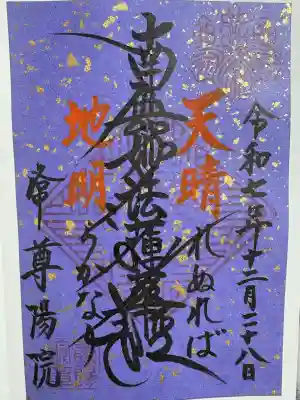 令和七年十二月二十八日
天晴れぬれば
南無妙法蓮華経
地明らかなり
常尊陽院